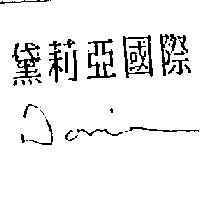 黛莉亞國際